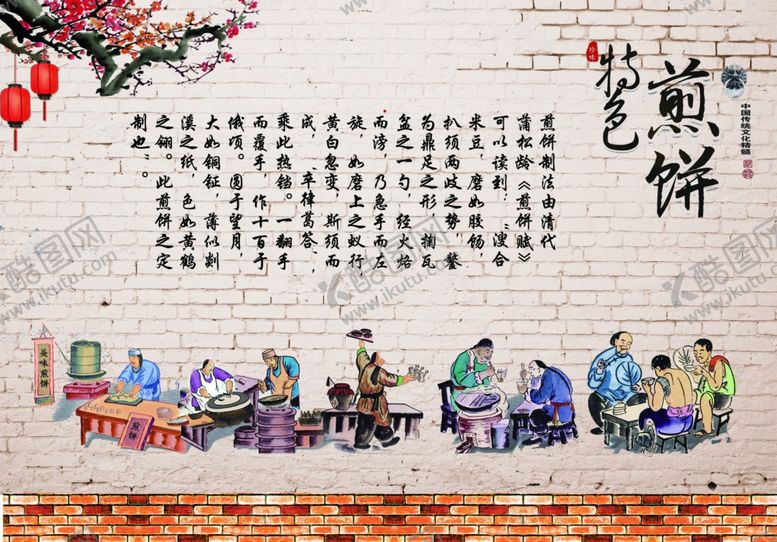 煎饼
特色
珍味
中国传统文化精髓
煎饼制法由清代
蒲松龄《煎饼赋》
可以读到：“溲合
米豆，磨如胶饧，
扒须两歧之势，鏊
为鼎足之形，掬瓦
盆之一勺，经火焰
而滂，乃急手而左
旋，如磨上之蚁行，
黄白忽变，斯须而
成，‘卒律葛答’，
乘此热铛。一翻手
而覆手，作十百于
俄顷。圆于望月，
大如铜钲，薄似剡
溪之纸，色如黄鹤
之翎。此煎饼之定
制也”。
美味煎饼
煎饼
酷图网
www.ikutu.com